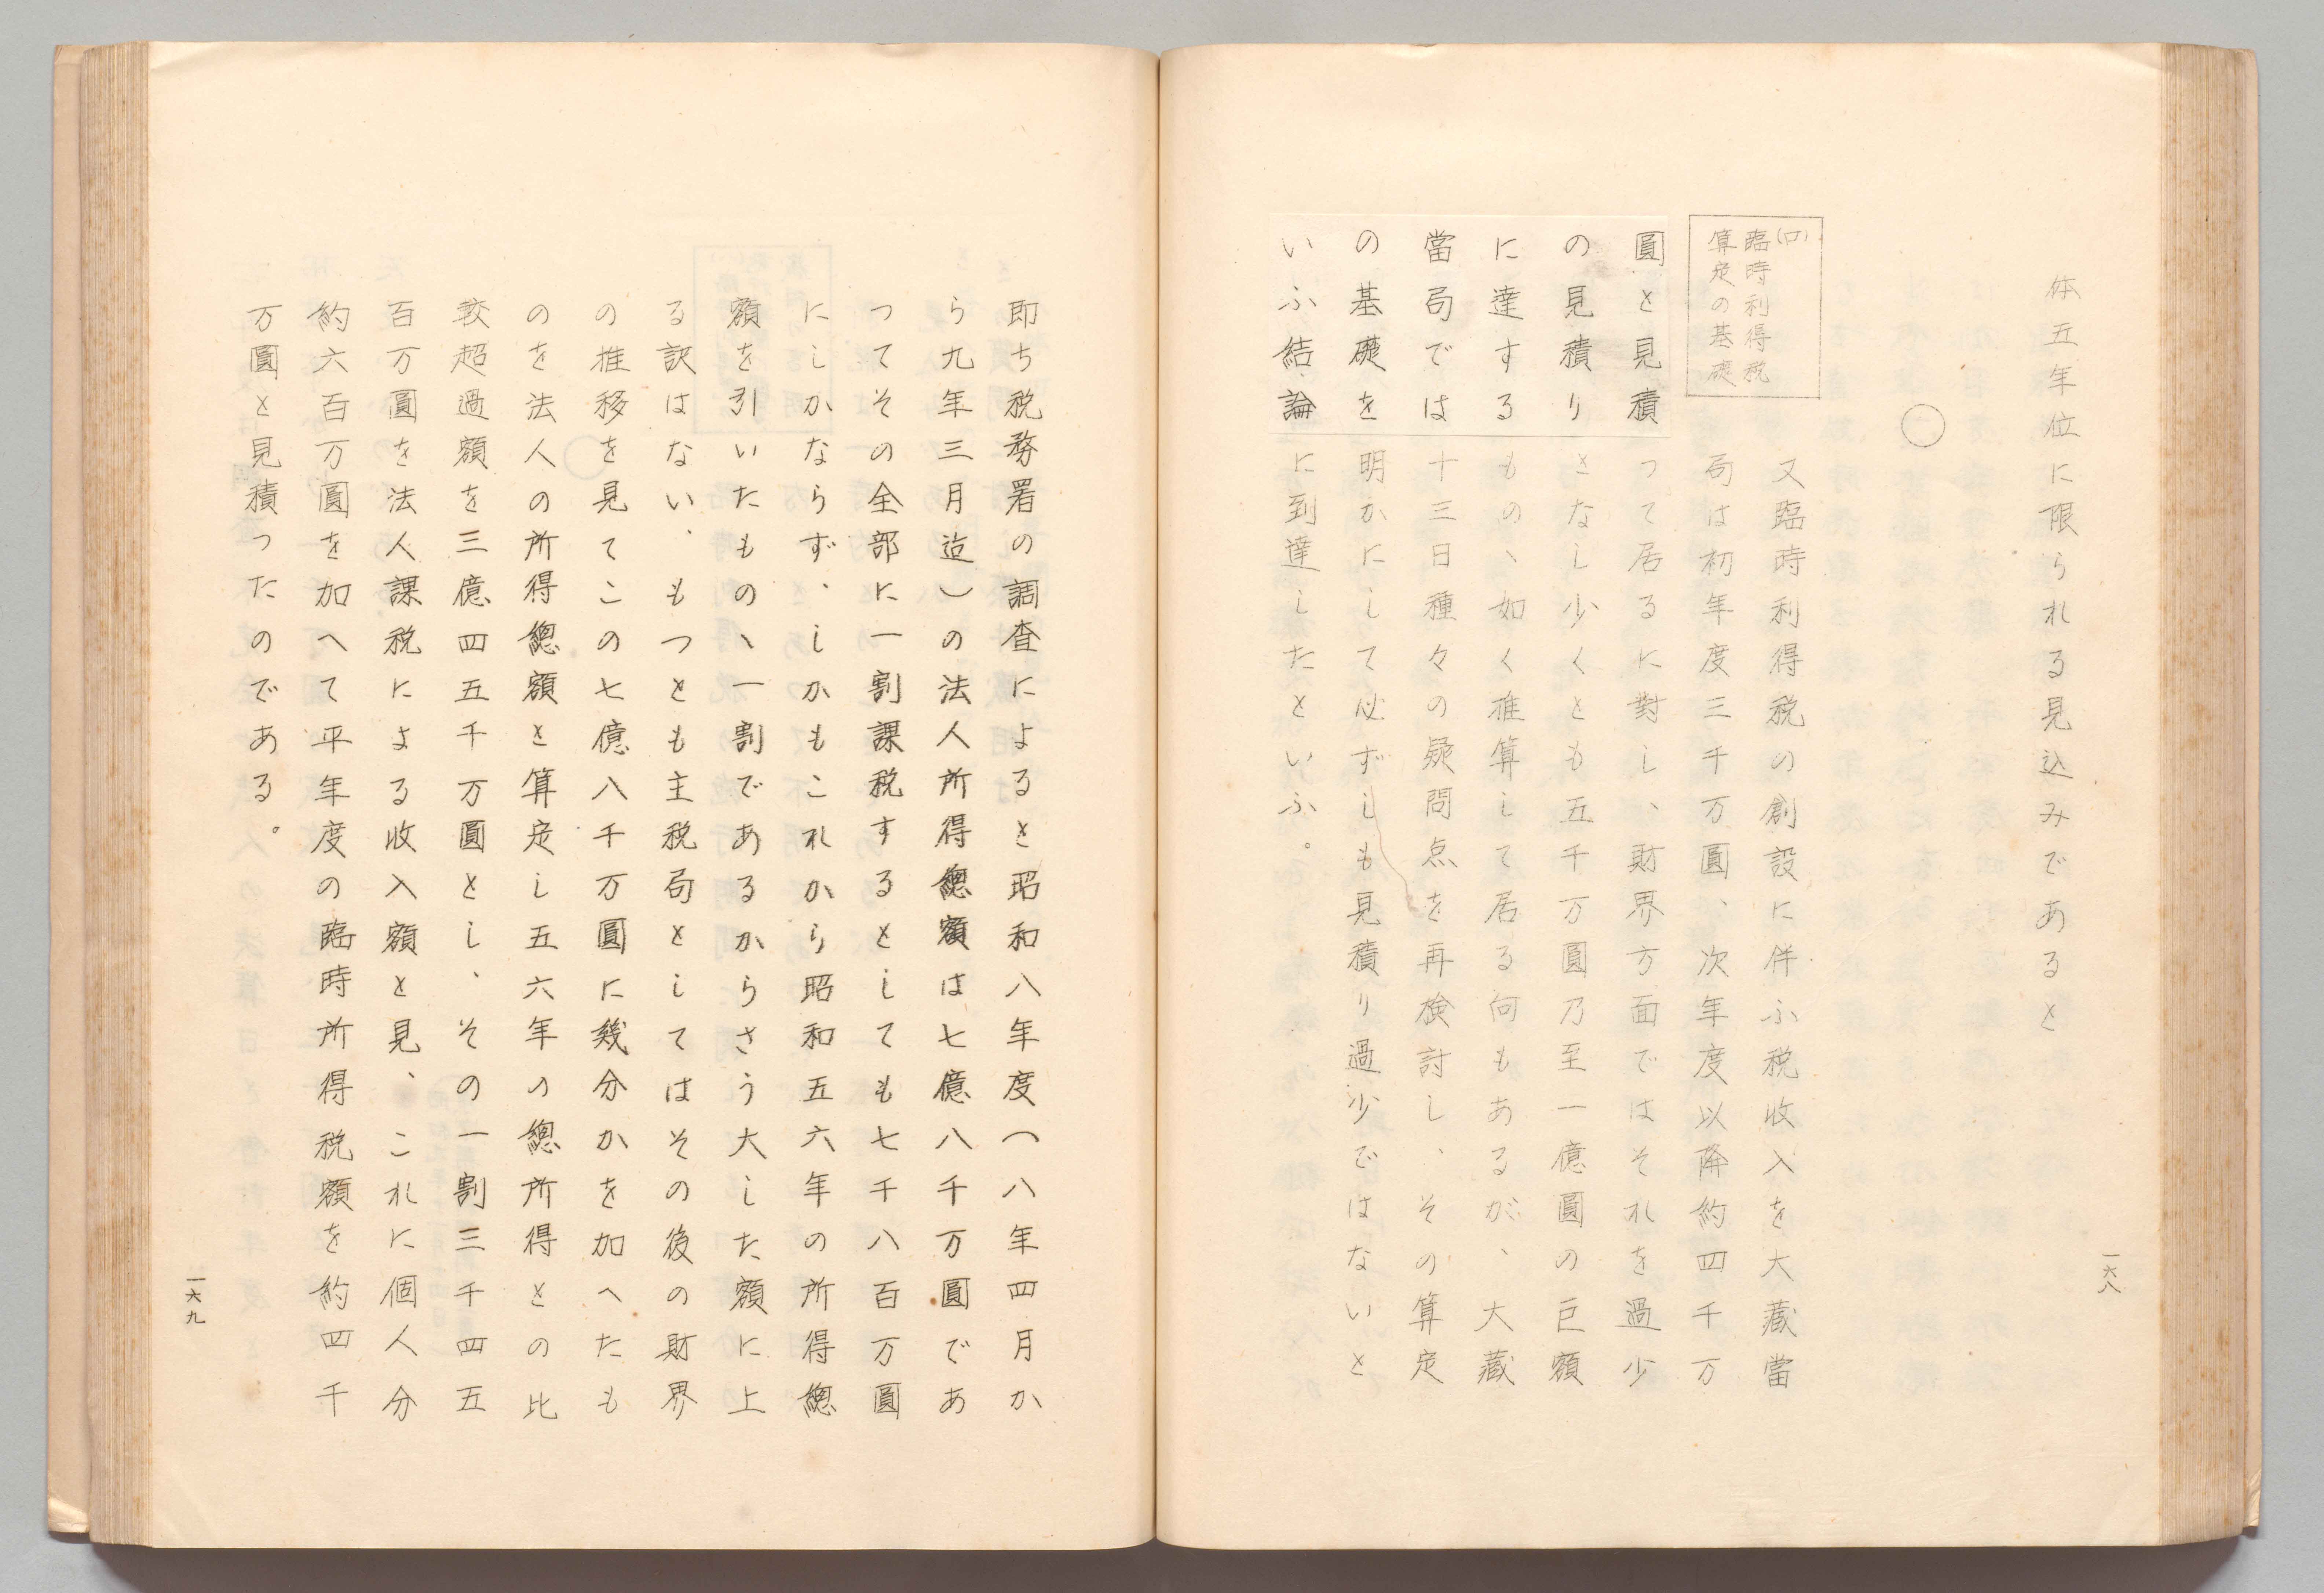 体五年位に限られる見込みであると
○
(ロ)
臨時利得税
算定の基礎
又臨時利得税の創設に伴ふ税收入を大蔵當
局は初年度三千万圓、次年度以降約四千万
圓と見積つて居るに對し、財界方面ではそれを過少
の見積りとなし少くとも五千万圓乃至一億圓の巨額
に達するものゝ如く推算して居る向もあるが、大蔵
當局では十三日種々の疑問点を再検討し、その算定
の基礎を明かにして必ずしも見積り過少ではないと
いふ結論に到達したといふ。
一六八
即ち税務署の調査によると昭和八年度(八年四月か
ら九年三月迄)の法人所得總額は七億八千万圓であ
つてその全部に一割課税するとしても七千八百万圓
にしかならず、しかもこれから昭和五六年の所得總
額を引いたものゝ一割であるからさう大した額に上
る訳はない、もつとも主税局としてはその後の財界
の推移を見てこの七億八千万圓に幾分かを加へたも
のを法人の所得總額と算定し五六年の總所得との比
較超過額を三億四五千万圓とし、その一割三千四五
百万圓を法人課税による收入額と見、これに個人分
約六百万圓を加へて平年度の臨時所得税額を約四千
万圓と見積つたのである。
一六九